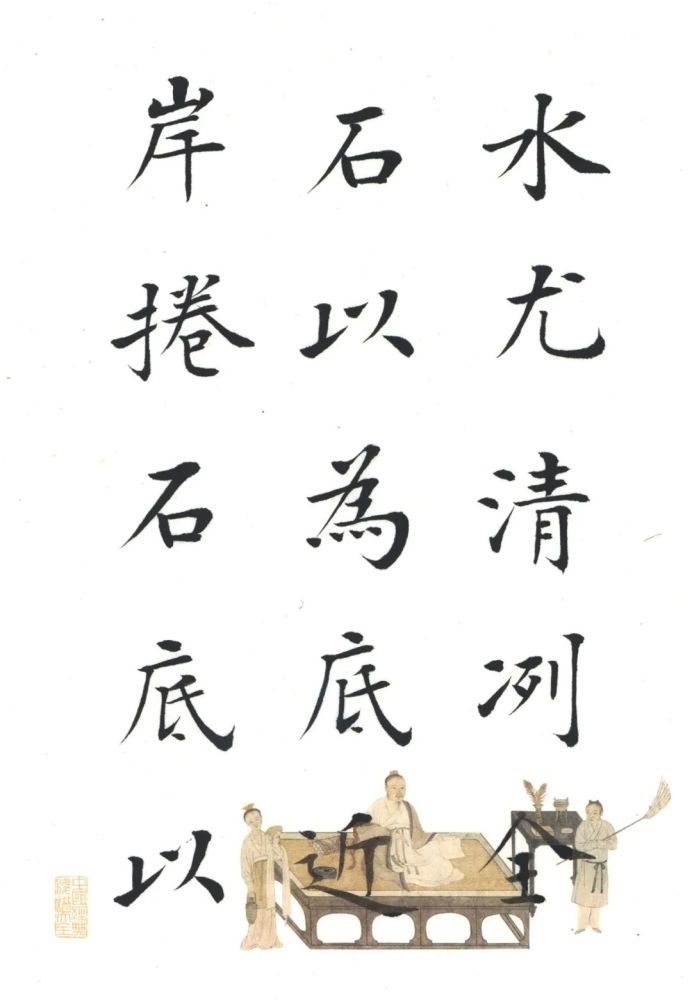 水尤清冽全
石以為底近
岸捲石底以